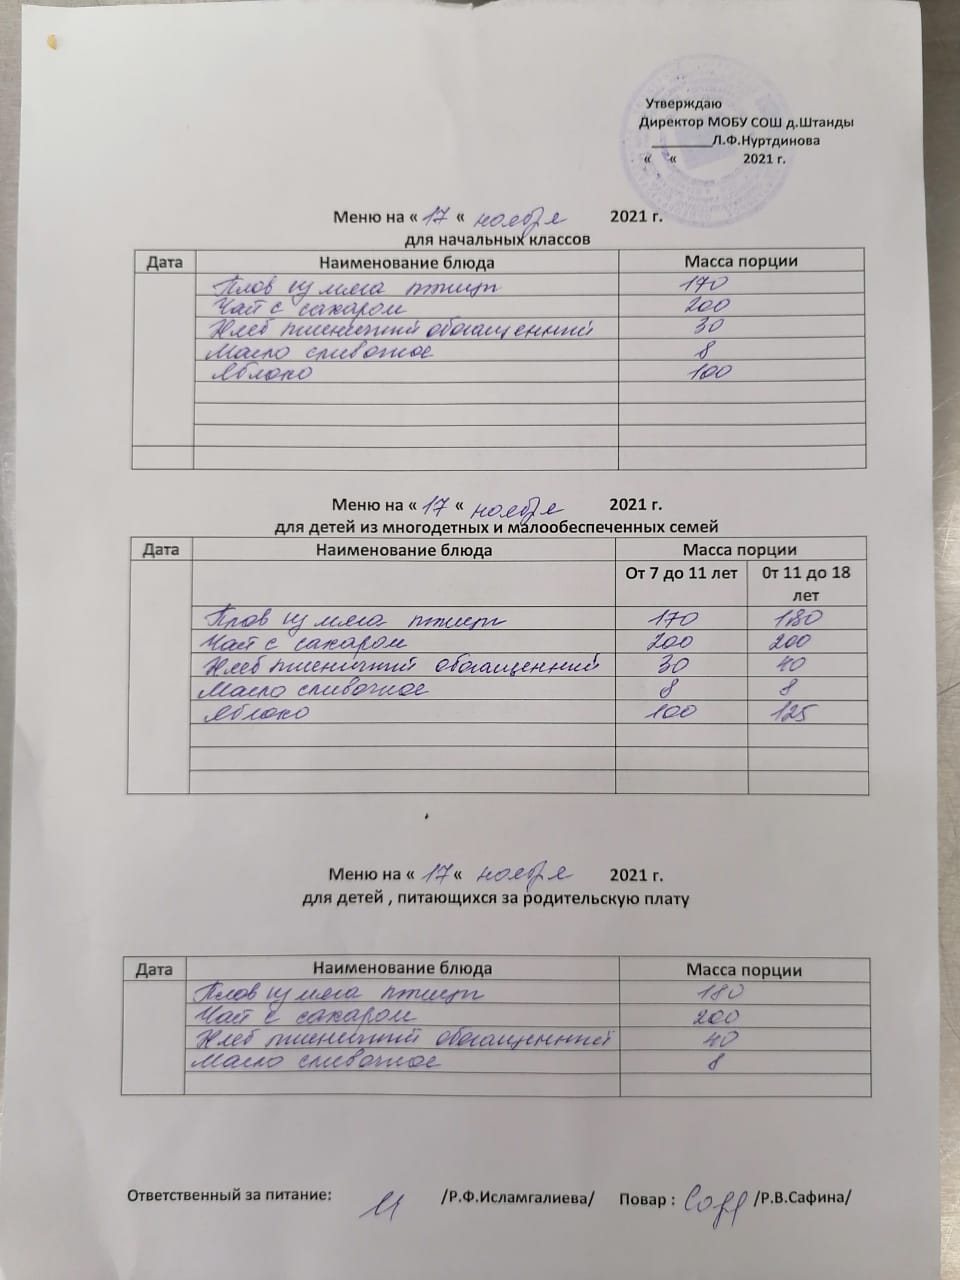 Утверждаю
Директор МОБУ СОШ д.Штанды
________Л.Ф.Нуртдинова
« « 2021 г.
Меню на « 17 « ноября 2021 г.
для начальных классов
Дата Наименование блюда Масса порции
Плов из мяса птицы 170
Чай с сахаром 200
Хлеб пшеничный обогащенный 30
Масло сливочное 8
Яблоко 100
Меню на « 17 « ноября 2021 г.
для детей из многодетных и малообеспеченных семей
Дата Наименование блюда Масса порции
От 7 до 11 лет 0т 11 до 18 лет
Плов из мяса птицы 170 180
Чай с сахаром 200 200
Хлеб пшеничный обогащенний 30 40
Масло сливочное 8 8
Яблоко 100 125
Меню на « 17 « ноября 2021 г.
для детей , питающихся за родительскую плату
Дата Наименование блюда Масса порции
Плов из мяса птицы 180
Чай с сахаром 200
Хлеб пшеничный обогащенный 40
Масло сливочное 8
Ответственный за питание: /Р.Ф.Исламгалиева/ Повар : /Р.В.Сафина/